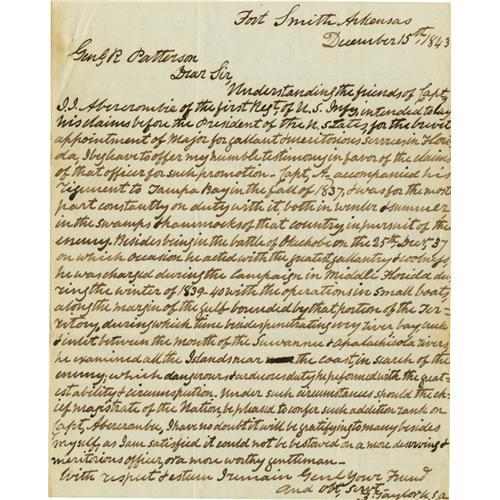 Fort Smith Arkansas
December 15th, 1843
Genl, R Patterson
Dear Sir
Understanding the friends of Capt,
J. J. Abercrombie of the first Regt, of U. S. Infy, intended to lay
his claims before the President of the U. States, for the brevit
appointment of Major for gallant & meritorious services in Flori-
da, I beg leave to offer my humble testimony in favor of the claims
of that officer for such promotion - Capt, A, accompanied his
regiment to Tampa Bay in the fall of 1837, & was for the most
part constantly on duty with it, both in winter & summer
in the swamps & hammocks of that country in pursuit of the
enemy. Besides being in the battle of Okechobe on the 25th, Decr, 37
on which occasion he acted with the greatest gallantry & coolness
he was charged during the campaign in Middle Florida du-
ring the winter of 1839-40 with the operations in small boats
along the margin of the gulf bounded by that portion of the Ter-
ritory, during which time besides penetrating every river bay, creek
& inlet between the mouth of the Suwannee & Apalachicola rivers
he examined all the Islands near the coast, in search of the
enemy; which dangerous & arduous duty he preformed with the great-
est ability & circumspection. Under such circumstances should the ch-
ief magistrate of the Nation, be pleased to confer such addition rank on
Capt, Abercrombie, I have no doubt it will be gratifying to many besides
myself, as I am satisfied it could not be bestowed on a more deserving &
meritorious officer, or a more worthy gentleman -
With respect & esteem I remain Genl, Your Friend
And Obt, Servt,
Z. Taylor U. S. A